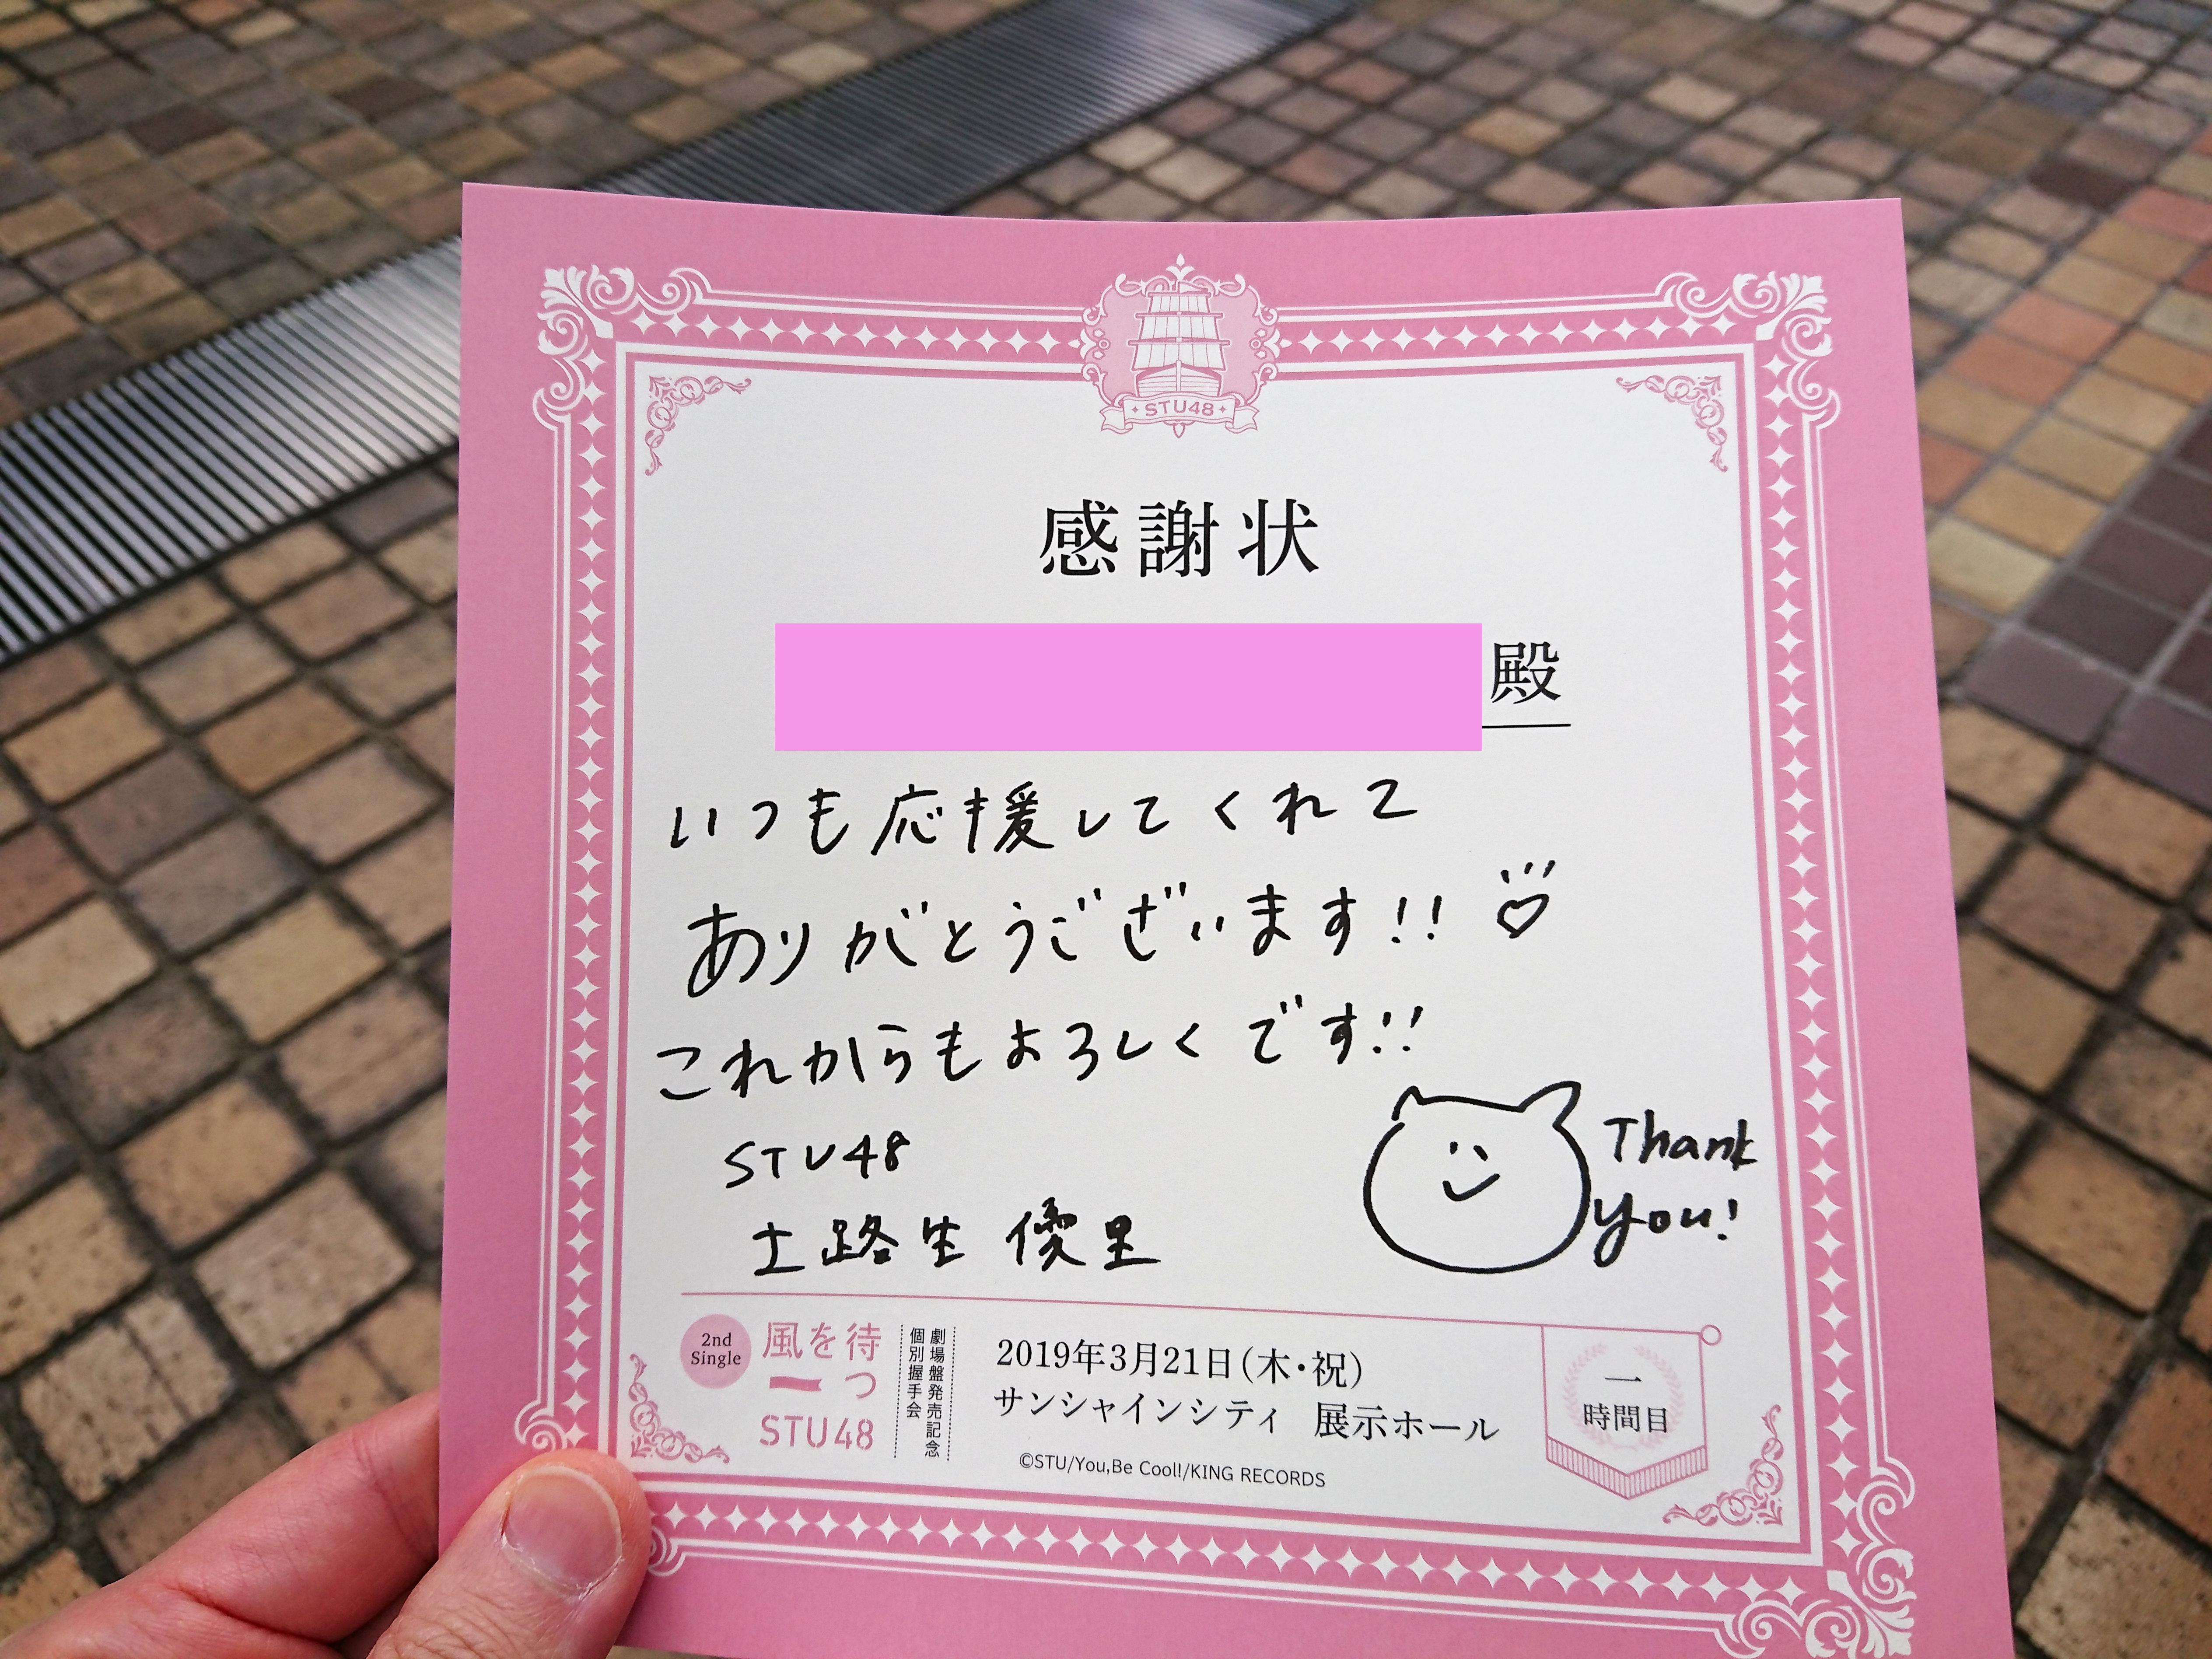 STU48
感謝状
殿
いつも応援してくれて
ありがとうございます!!♡
これからもよろしくです!!
STU48
土路生優里
Thank
you!
2nd
Single
風を待つ
STU48
劇場盤発売記念
個別握手会
2019年3月21日(木・祝)
サンシャインシティ 展示ホール
©STU/You,Be Cool!/KING RECORDS
一
時間目